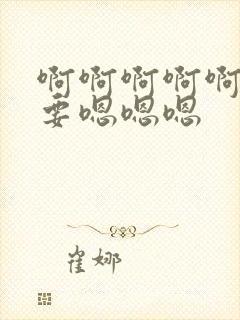 啊啊啊啊啊
要嗯嗯嗯
崔娜